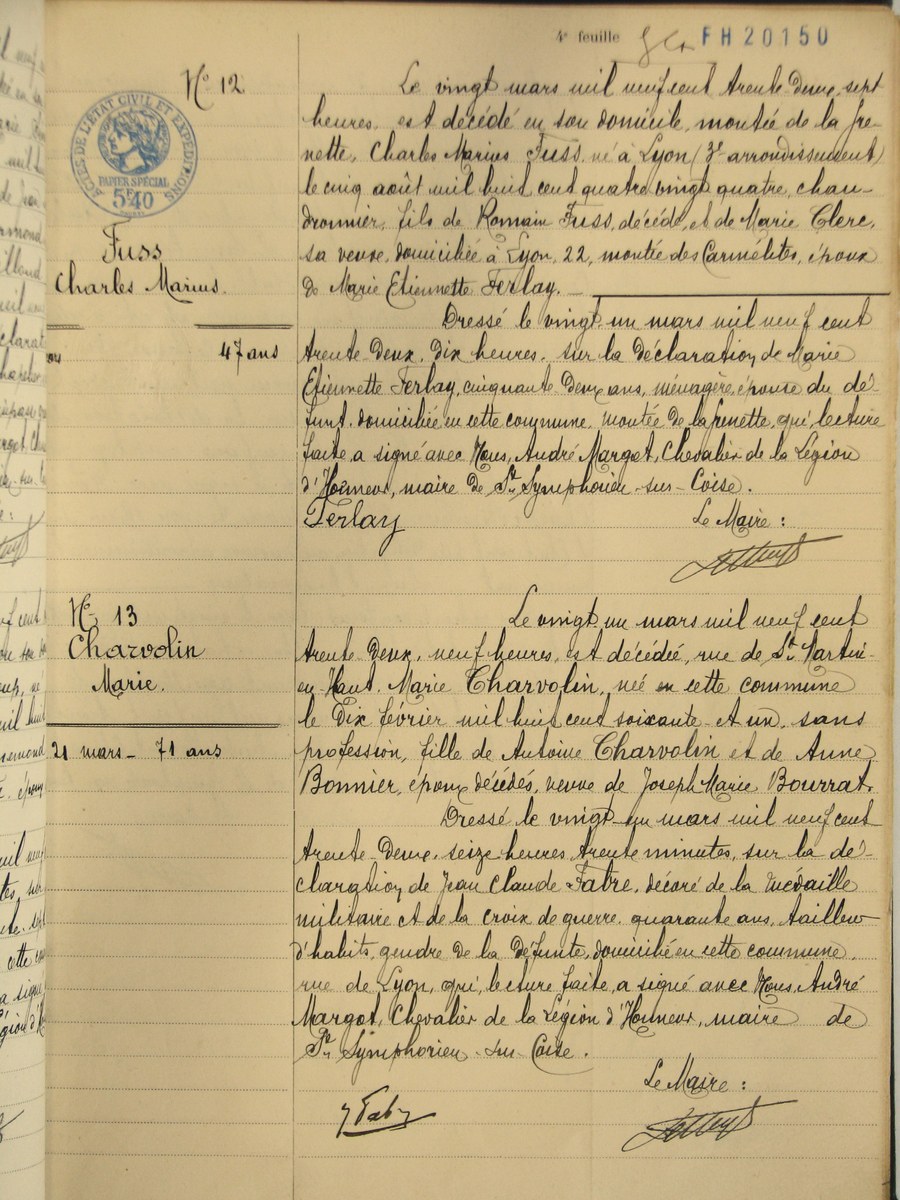 4e feuille
FH20150
No 12
ACTES DE L'ÉTAT CIVIL ET EXPÉDITIONS
PAPIER SPÉCIAL
5F40
Fuss
Charles Marius.
47 ans
Le vingt mars mil neuf cent trente deux, sept
heures, est décédé en son domicile, montée de la fre-
nette, Charles Marius Fuss né à Lyon (3e arrondissement)
le cinq août mil huit cent quatre vingt quatre, chau-
dronnier, fils de Romain Fuss, décédé, et de Marie Clerc,
sa veuve, domiciliée à Lyon, 22, montée des Carmélites, époux
de Marie Etiennette Ferlay.
Dressé le vingt un mars mil neuf cent
trente deux, dix heures, sur la déclaration de Marie
Etiennette Ferlay, cinquante deux ans, ménagère, épouse du dé-
funt, domiciliée en cette commune, montée de la frenette, qui, lecture
faite, a signé avec Nous, André Margot, Chevalier de la Légion
d'Honneur, maire de St Symphorien-sur-Coise.
Ferlay
Le Maire :
No 13
Charvolin
Marie.
21 mars - 71 ans
Le vingt un mars mil neuf cent
trente deux, neuf heures, est décédée, rue de St Martin-
en-Haut, Marie Charvolin, née en cette commune
le dix février mil huit cent soixante et un, sans
profession, fille de Antoine Charvolin et de Anne
Bonnier, époux décédés, veuve de Joseph Marie Bourrat.
Dressé le vingt un mars mil neuf cent
trente deux, seize heures trente minutes, sur la dé-
claration de Jean Claude Fabre, décoré de la médaille
militaire et de la croix de guerre, quarante ans, tailleur
d'habits, gendre de la défunte, domicilié en cette commune,
rue de Lyon, qui, lecture faite, a signé avec Nous, André
Margot, Chevalier de la Légion d'Honneur, maire de
St Symphorien-sur-Coise.
Le Maire :